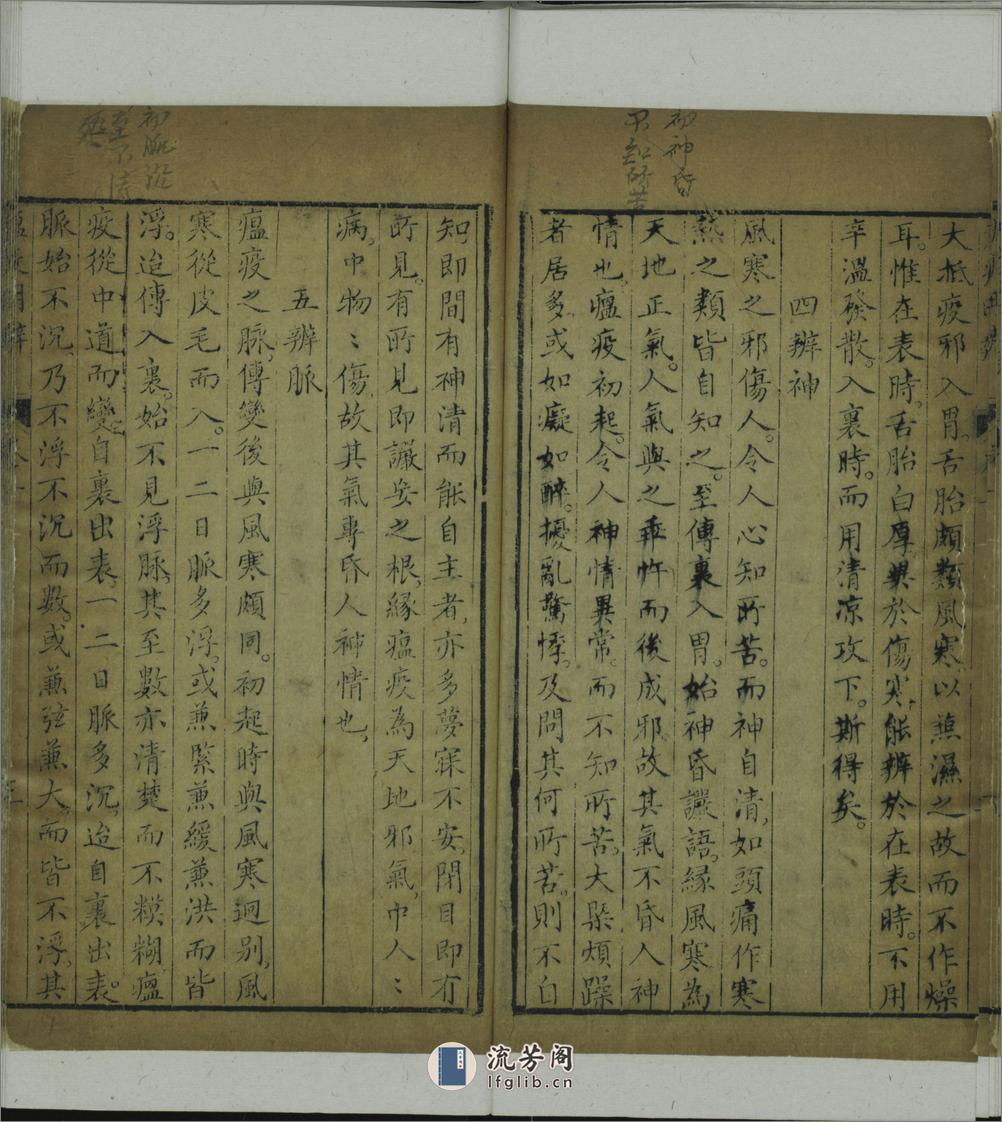 初神昏
大抵疫邪入胃。舌胎頗類風寒以蒸濕之故而不作燥
耳。惟在表時。舌胎白厚異於傷寒能辨於在表時。不用
辛溫發散。入裏時。而用清凉攻下。斯得矣。
四辨神
風寒之邪傷人。令人心知所苦。而神自清。如頭痛作寒
熱之類皆自知之。至傳裏入胃。始神昏譫語。緣風寒為
天地正氣。人氣與之乖忤而後成邪。故其氣不昏人神
情也。瘟疫初起。令人神情異常。而不知所苦。大槩煩躁
者居多。或如癡如醉。擾亂驚悸。及問其何所苦。則不自
知。即間有神清而能自主者。亦多夢寐不安。閉目即有
所見。有所見即譫妄之根。緣瘟疫為天地邪氣。中人〻
病。中物〻傷故其氣專昏人神情也。
五辨脈
瘟疫之脈。傳變後與風寒頗同。初起時與風寒迥别。風
寒從皮毛而入。一二日脈多浮。或兼緊兼緩兼洪而皆
浮。迨傳入裏。始不見浮脈。其至數亦清楚而不糢糊瘟
疫從中道而變。自裏出表。一二日脈多沉。迨自裏出表。
脈始不沉。乃不浮不沉而數。或兼弦兼大。而皆不浮。其
流芳阁
lfglib.cn